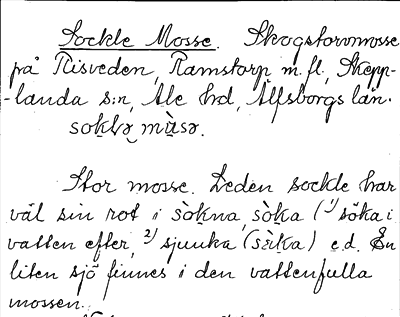 Sockle Mosse. Skogstorvmosse
på Risveden, Ramstorp m.fl., Skepp-
-landa s:n, Ale hd, Älfsborgs län.
sok̤lə mùsə.
Stor mosse. Leden sockle har
väl sin rot i sòk̤na, sòka (1) söka i
vatten efter, 2) sjunka (sèk̤a) e.d. En
liten sjö finnes i den vattenfulla
mossen.